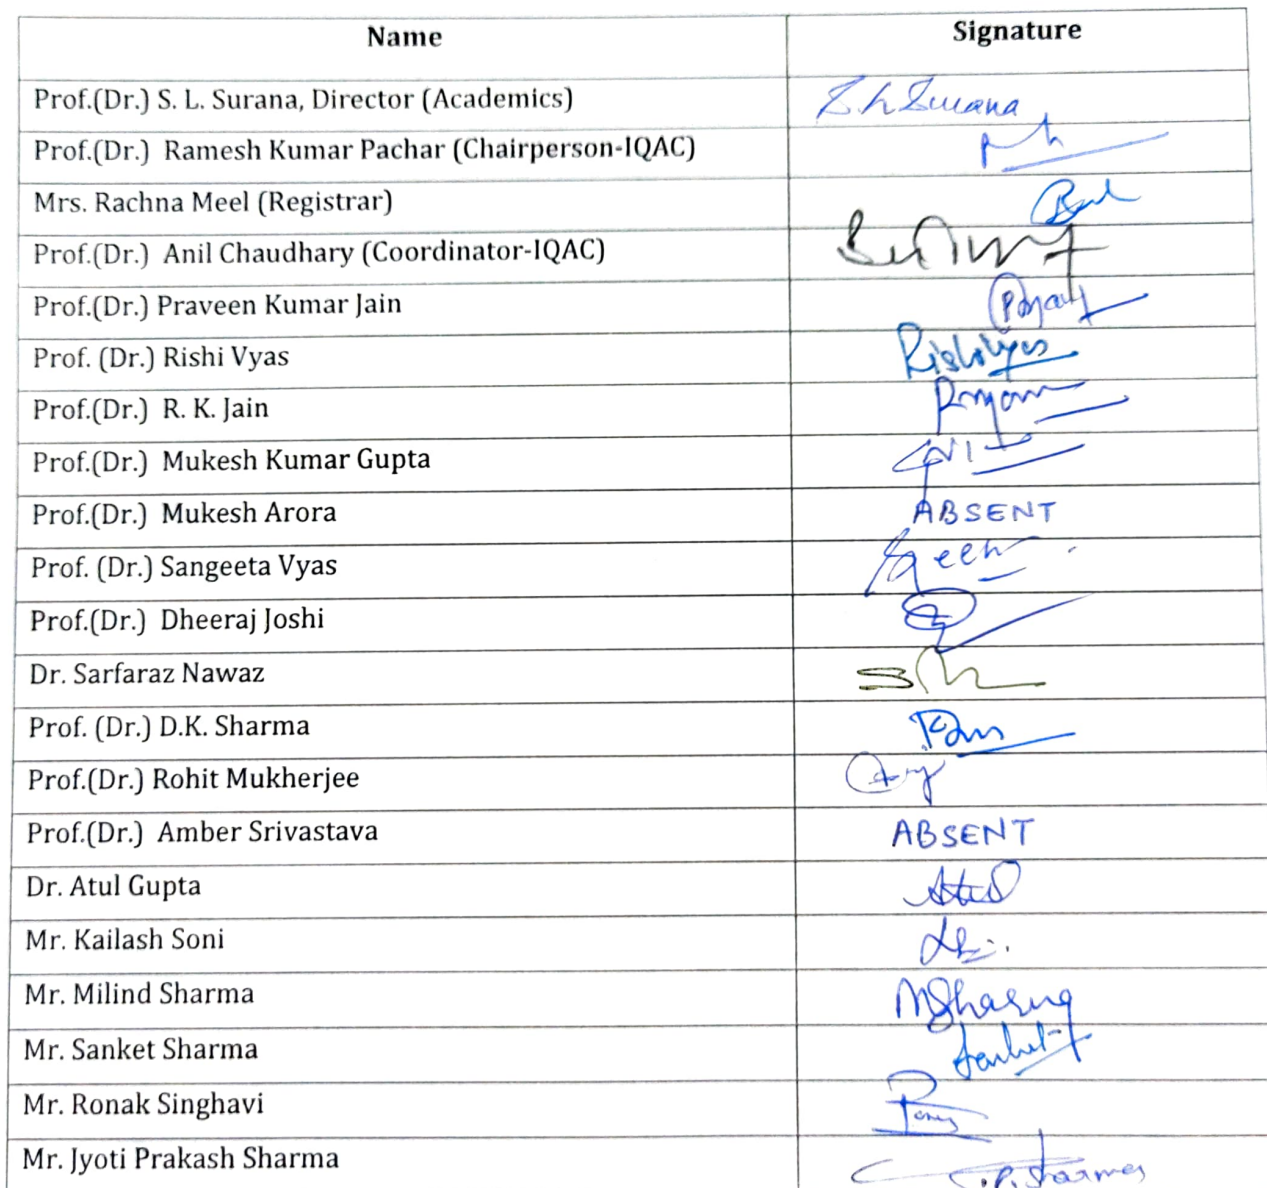 Name Signature
Prof.(Dr.) S. L. Surana, Director (Academics) S. L. Surana
Prof.(Dr.) Ramesh Kumar Pachar (Chairperson-IQAC)
Mrs. Rachna Meel (Registrar)
Prof.(Dr.) Anil Chaudhary (Coordinator-IQAC)
Prof.(Dr.) Praveen Kumar Jain
Prof. (Dr.) Rishi Vyas Rishi Vyas
Prof.(Dr.) R. K. Jain
Prof.(Dr.) Mukesh Kumar Gupta
Prof.(Dr.) Mukesh Arora ABSENT
Prof. (Dr.) Sangeeta Vyas
Prof.(Dr.) Dheeraj Joshi
Dr. Sarfaraz Nawaz
Prof. (Dr.) D.K. Sharma
Prof.(Dr.) Rohit Mukherjee
Prof.(Dr.) Amber Srivastava ABSENT
Dr. Atul Gupta Atul
Mr. Kailash Soni
Mr. Milind Sharma MSharma
Mr. Sanket Sharma Sanket
Mr. Ronak Singhavi
Mr. Jyoti Prakash Sharma J.P. Sharma